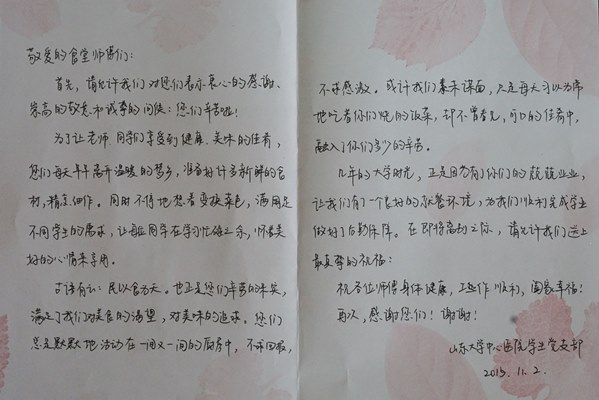 敬爱的食堂师傅们：
首先，请允许我们对您们表示衷心的感谢、
崇高的敬意和诚挚的问候：您们辛苦啦！
为了让老师、同学们享受到健康、美味的佳肴，
您们每天早早离开温暖的梦乡，准备好许多新鲜的食
材，精工细作。同时不停地想着变换菜色，满足
不同学生的需求，让每位同学在学习忙碌之余，怀着美
好的心情来享用。
古语有云：民以食为天。也正是您们辛苦的味美，
满足了我们对美食的渴望，对美味的追求。您们
总是默默地活动在一间又一间的厨房中，不求回报，
不求感激。或许我们素未谋面，只是每天习以为常
地吃着你们烧的饭菜，却不曾看见，可口的佳肴中，
融入了你们多少的辛苦。
几年的大学时光，正是因为有了你们的兢兢业业，
让我们有一个良好的就餐环境，为我们顺利完成学业
做好了后勤保障。在即将离别之际，请允许我们送上
最真挚的祝福：
祝各位师傅身体健康，工作顺利，阖家幸福！
再次，感谢您们！谢谢！
山东大学中心医院学生党支部
2015. 11. 2.